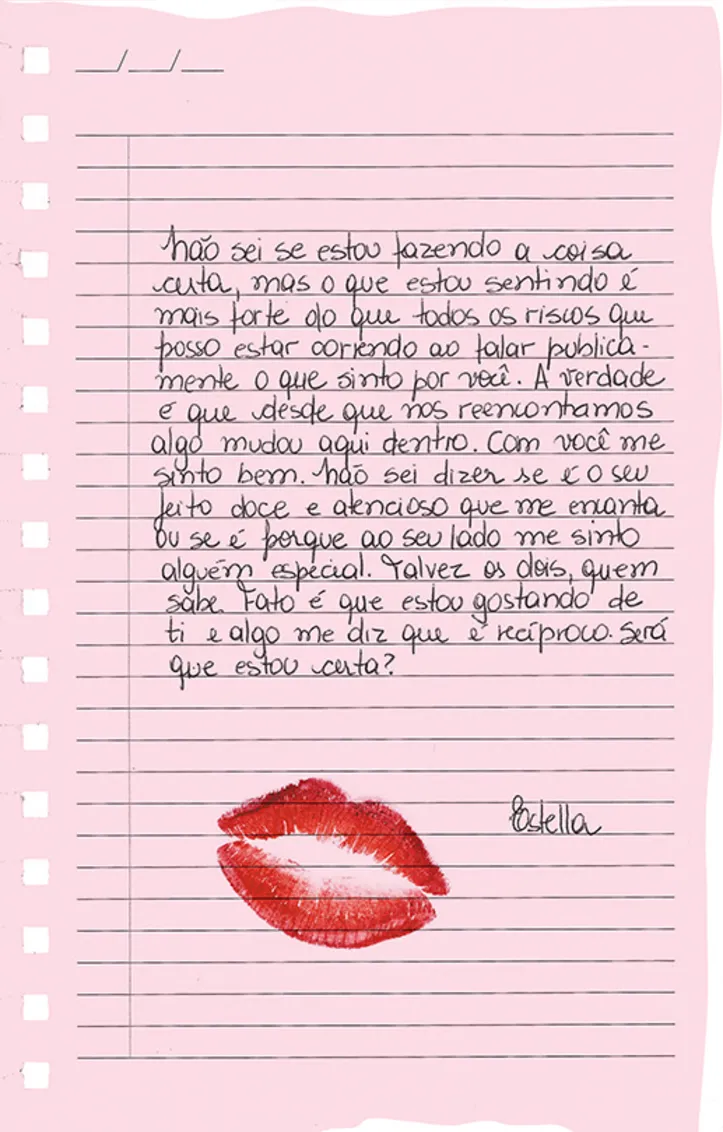 __/__/__
Não sei se estou fazendo a coisa
certa, mas o que estou sentindo é
mais forte do que todos os riscos que
posso estar correndo ao falar publica-
mente o que sinto por você. A verdade
é que desde que nos reencontamos
algo mudou aqui dentro. Com você me
sinto bem. Não sei dizer se é o seu
jeito doce e atencioso que me encanta
ou se é porque ao seu lado me sinto
alguém especial. Talvez os dois, quem
sabe. Fato é que estou gostando de
ti e algo me diz que é recíproco. Será
que estou certa?
Estella